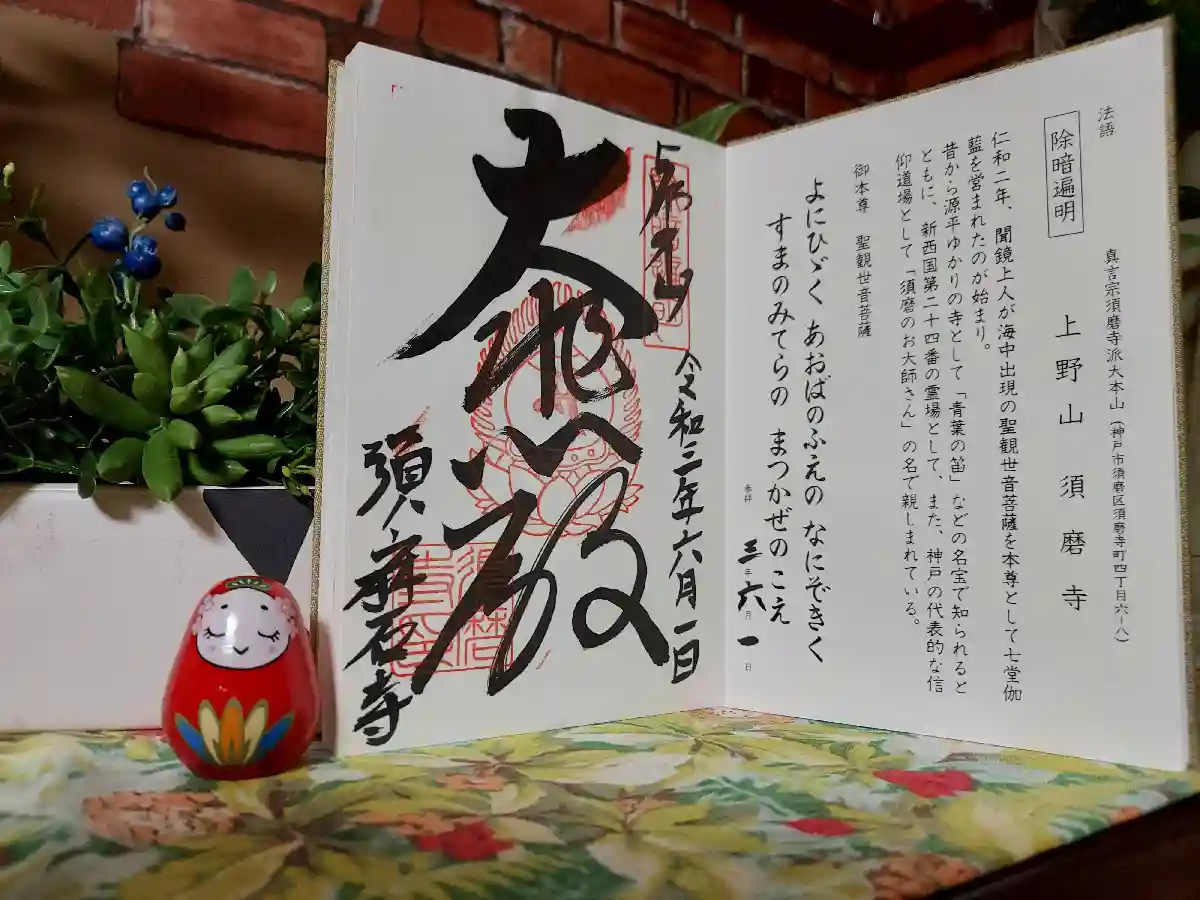 法語
真言宗須磨寺派大本山(神戸市須磨区須磨寺町四丁目六ー八)
除暗遍明
上野山 須磨寺
仁和二年、聞鏡上人が海中出現の聖観世音菩薩を本尊として七堂伽
藍を営まれたのが始まり。
昔から源平ゆかりの寺として「青葉の笛」などの名宝で知られると
ともに、新西国第二十四番の霊場として、また、神戸の代表的な信
仰道場として「須磨のお大師さん」の名で親しまれている。
御本尊 聖観世音菩薩
よにひゞく あおばのふえの なにぞきく
すまのみてらの まつかぜのこえ
参拝 三年六月一日
令和三年六月一日
大悲殿
須磨寺